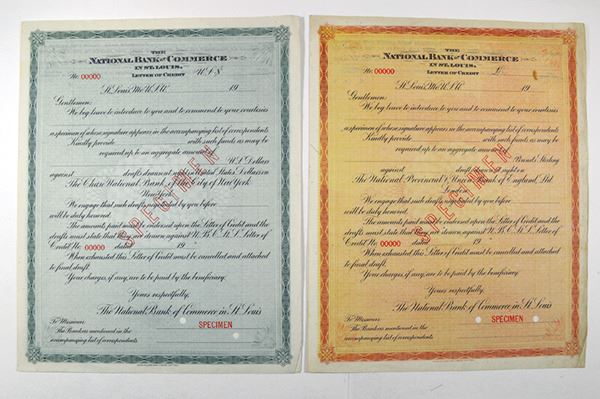 THE
NATIONAL BANK OF COMMERCE
IN ST. LOUIS.
No. 00000 LETTER OF CREDIT U.S.$
St. Louis, Mo. U.S.A. 19
Gentlemen:
We beg leave to introduce to you and to commend to your courtesies
a specimen of whose signature appears in the accompanying list of correspondents
Kindly provide with such funds as may be
required up to an aggregate amount
U.S. Dollars
against drafts drawn at sight in United States Dollars on
The Chase National Bank of the City of New York
New York
We engage that such drafts negotiated by you before
will be duly honored.
The amounts paid must be endorsed upon the Letter of Credit and the
drafts must state that they are drawn against N. B. O. St. L. Letter of
Credit No. 00000 dated 19
When exhausted this Letter of Credit must be cancelled and attached
to final draft.
Your charges, if any, are to be paid by the beneficiary.
Yours respectfully,
The National Bank of Commerce in St. Louis
To Messieurs
The Bankers mentioned in the
accompanying list of correspondents.
SPECIMEN
SPECIMEN
THE
NATIONAL BANK OF COMMERCE
IN ST. LOUIS.
No. 00000 LETTER OF CREDIT £
St. Louis, Mo. U.S.A. 19
Gentlemen:
We beg leave to introduce to you and to commend to your courtesies
a specimen of whose signature appears in the accompanying list of correspondents
Kindly provide with such funds as may be
required up to an aggregate amount
Pounds Sterling
against drafts drawn at sight on
The National Provincial & Union Bank of England, Ltd.
London
We engage that such drafts negotiated by you before
will be duly honored.
The amounts paid must be endorsed upon the Letter of Credit and the
drafts must state that they are drawn against N. B. O. St. L. Letter of
Credit No. 00000 dated 19
When exhausted this Letter of Credit must be cancelled and attached
to final draft.
Your charges, if any, are to be paid by the beneficiary.
Yours respectfully,
The National Bank of Commerce in St. Louis
To Messieurs
The Bankers mentioned in the
accompanying list of correspondents.
SPECIMEN
SPECIMEN